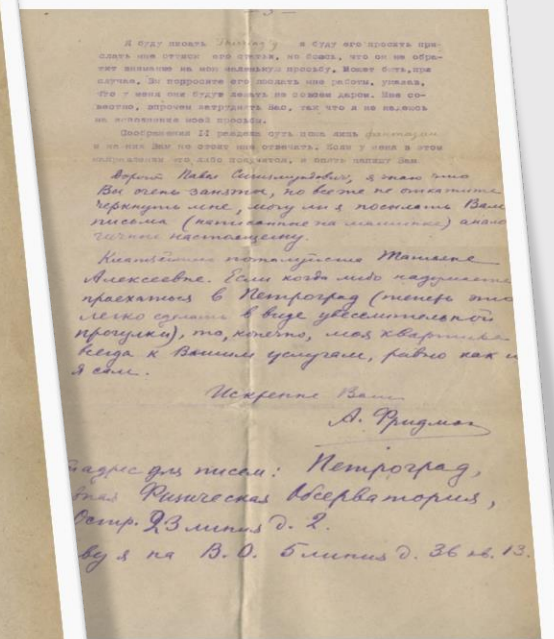 - 3 -
Я буду писать Thirring'у и буду его просить при-
слать мне оттиск его статьи, но боюсь, что он не обра-
тит внимание на мою маленькую просьбу. Может быть, при
случае, Вы попросите его послать мне работы, указав,
что у меня они будут лежать не совсем даром. Мне со-
вестно, впрочем затруднять Вас, так что я не надеюсь
на исполнение моей просьбы.
Соображения II раздела суть пока лишь фантазии
и на них Вам не стоит мне отвечать. Если у меня в этом
направлении что либо получится, я опять напишу Вам
Дорогой Павел Сигизмундович, я знаю что
Вы очень заняты, но все же не откажите
черкнуть мне, могу ли я посылать Вам
письма (написанные на машинке) анало
гичные настоящему.
Кланяйтесь пожалуйста Татьяне
Алексеевне. Если когда либо надумаете
проехаться в Петроград (теперь это
легко сделать в виде увеселительной
прогулки), то, конечно, моя квартира
всегда к Вашим услугам, равно как и
я сам.
Искренне Ваш
А. Фридман
адрес для писем: Петроград,
Физическая Обсерватория,
Остр. 23 линия д. 2.
ву я на В. О. 5 линия д. 36 кв. 13.